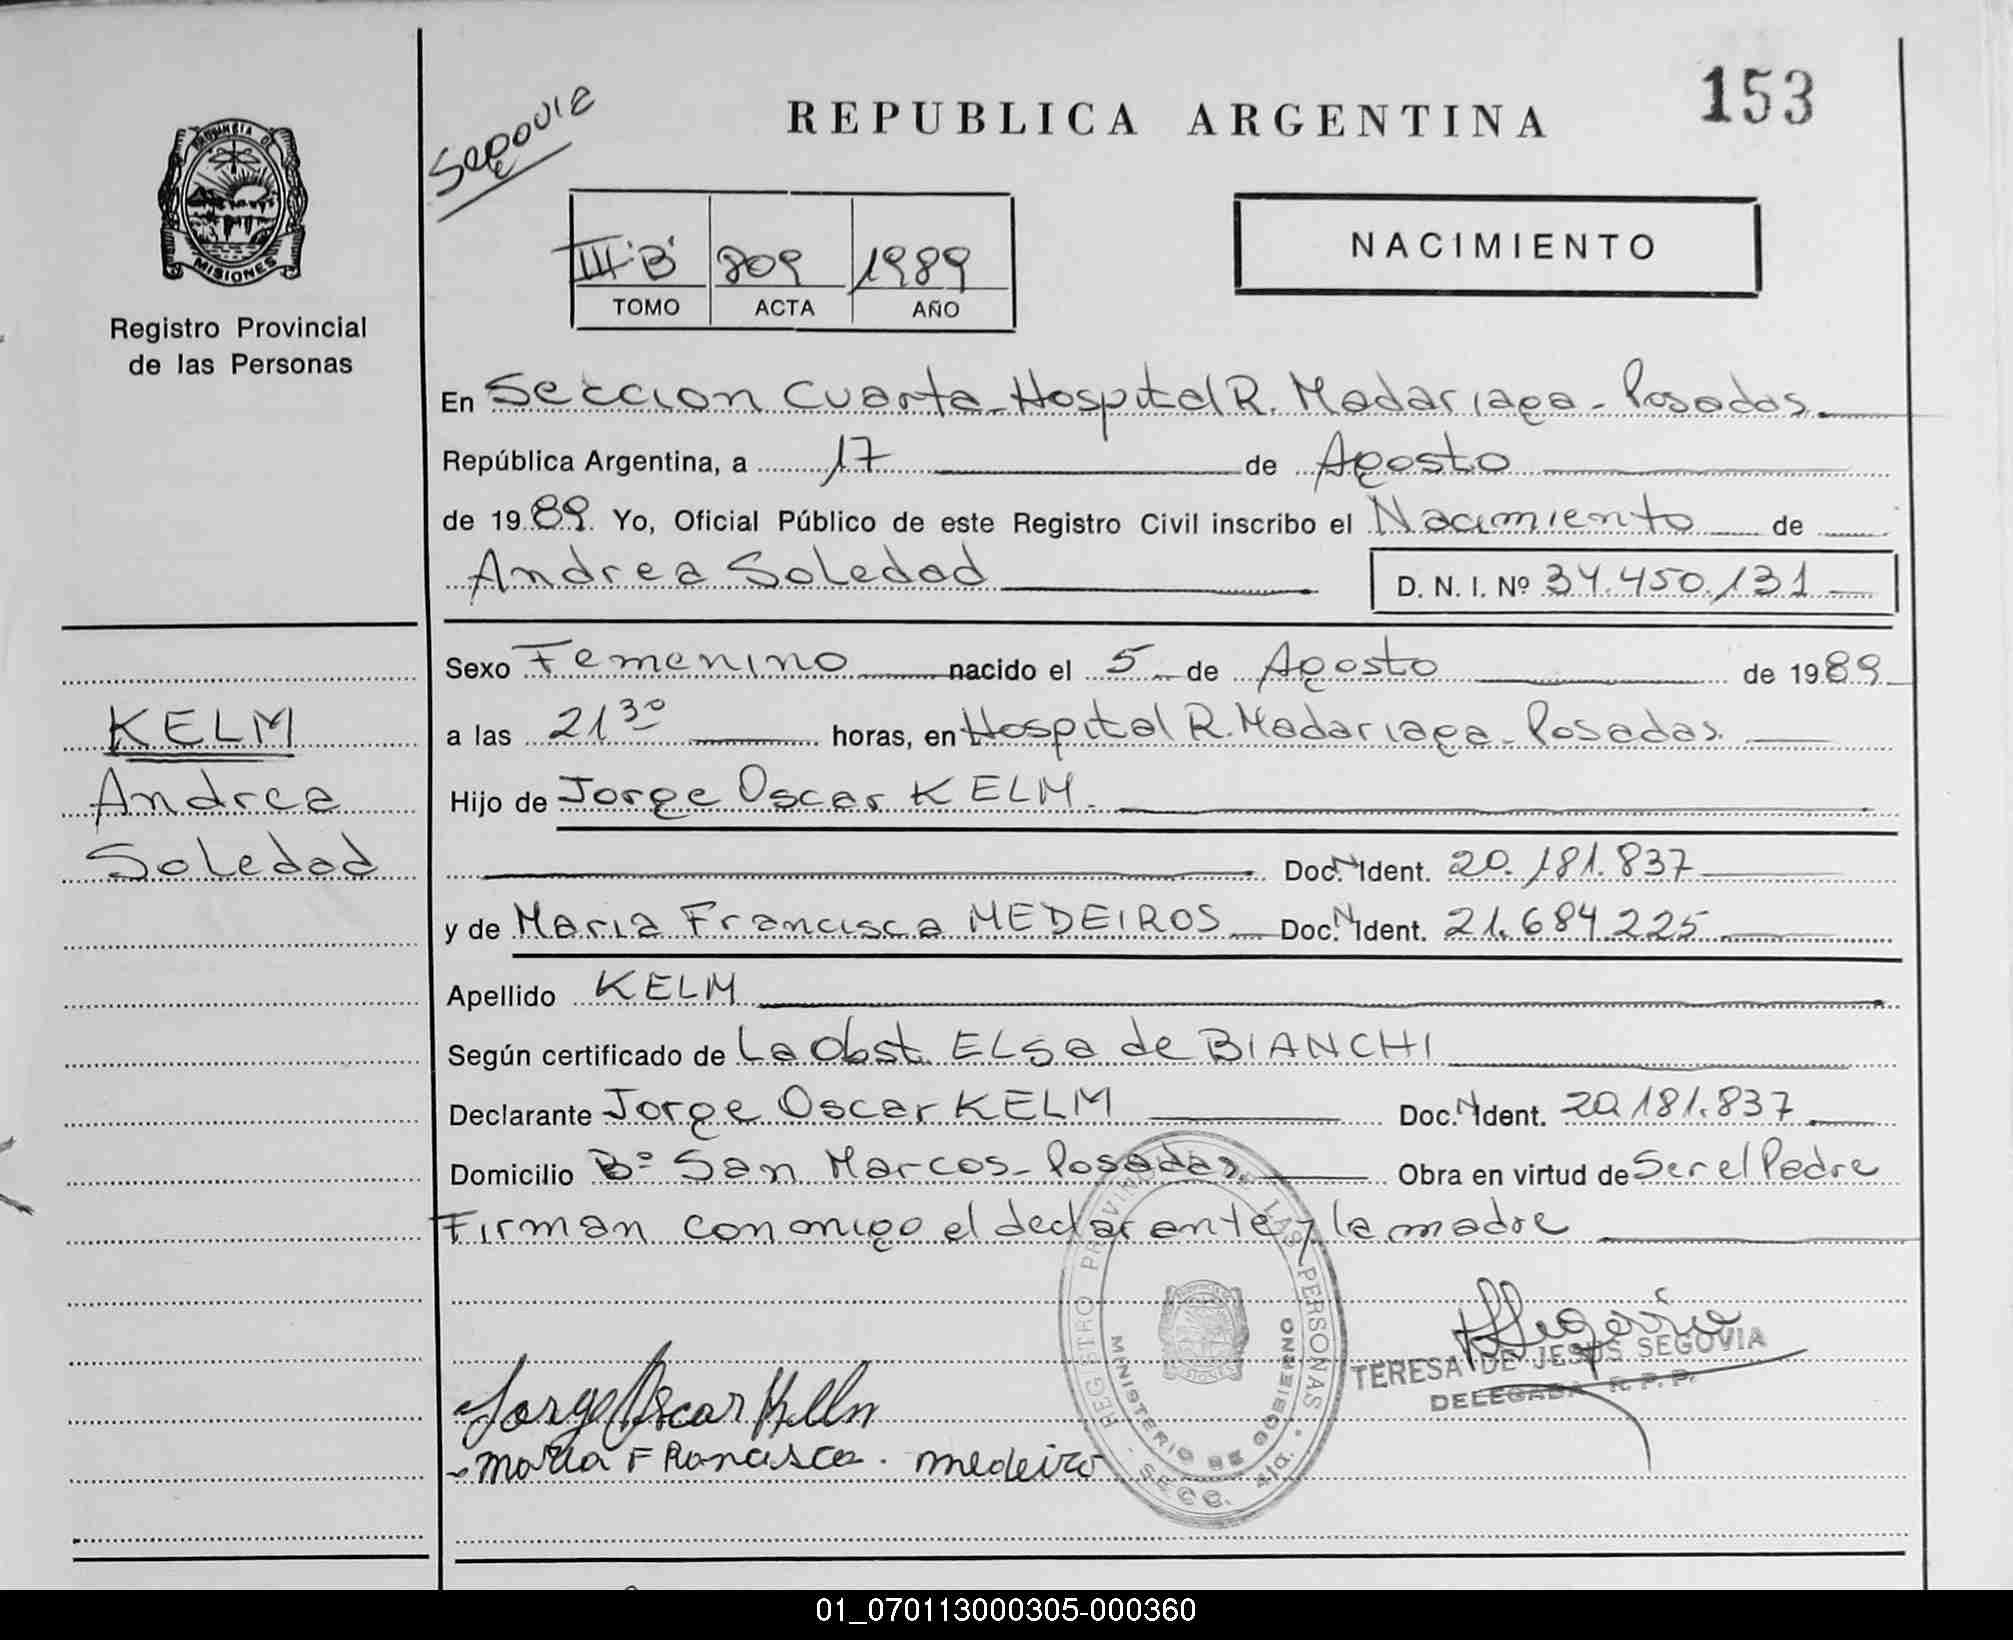 153
REPUBLICA ARGENTINA
Segovia
PROVINCIA DE
MISIONES
Registro Provincial
de las Personas
III "B" 809 1989
TOMO ACTA AÑO
NACIMIENTO
En Seccion Cuarta - Hospital R. Madariaga - Posadas
República Argentina, a 17 de Agosto
de 1989. Yo, Oficial Público de este Registro Civil inscribo el Nacimiento de
Andrea Soledad D. N. I. Nº 34.450.131
Sexo Femenino nacido el 5 de Agosto de 1989
a las 21 30 horas, en Hospital R. Madariaga - Posadas.
Hijo de Jorge Oscar KELM.
Doc. N Ident. 20.181.837
y de Maria Francisca MEDEIROS Doc. N Ident. 21.684.225
Apellido KELM
Según certificado de La Obst. ELSa de BIANCHI
Declarante Jorge Oscar KELM Doc. N Ident. 20.181.837
Domicilio Bº San Marcos - Posadas Obra en virtud de Ser el Padre
Firman con migo el declarante y la madre
KELM
Andrea
Soledad
REGISTRO PROVINCIAL DE LAS PERSONAS
MINISTERIO DE GOBIERNO
SECC. 4ta.
Segovia
TERESA DE JESUS SEGOVIA
DELEGADA R. P. P.
Jorge Oscar Kelm
Maria Francisca. medeiro
01_070113000305-000360